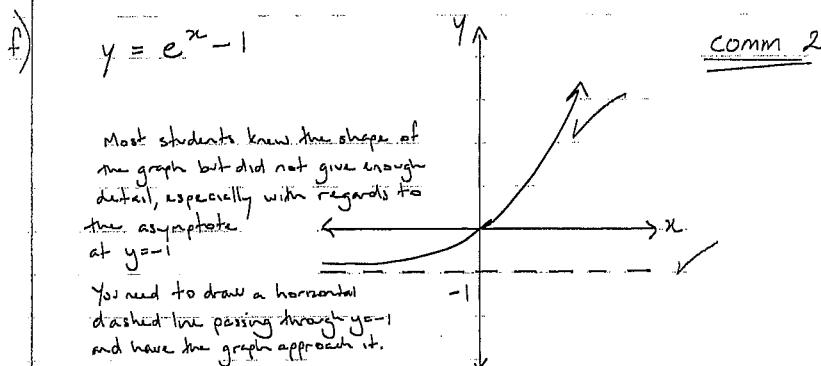 f)
y = e^x - 1
y
comm 2
Most students knew the shape of
the graph but did not give enough
detail, especially with regards to
the asymptote
at y=-1
x
-1
You need to draw a horizontal
dashed line passing through y=-1
and have the graph approach it.